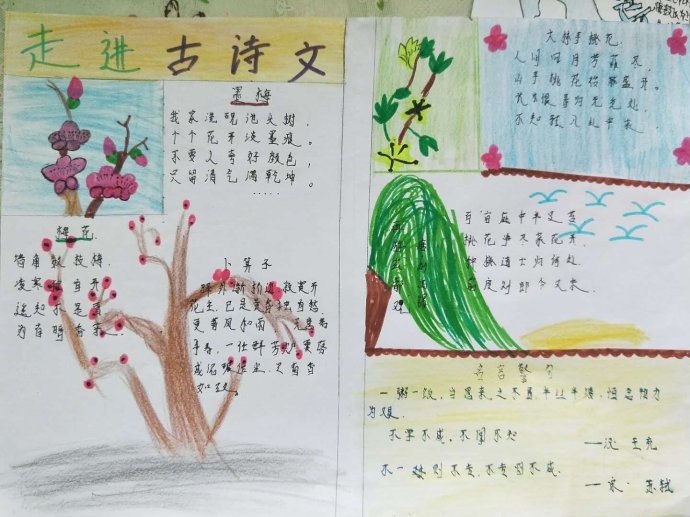 走进古诗文
墨梅
我家洗砚池头树，
个个花开淡墨痕。
不要人夸好颜色，
只留清气满乾坤。
梅花
墙角数枝梅
凌寒 自开
遥知不是
为有暗香来
卜算子
驿外断 边 寂寞开
花主 已是黄昏独自愁
更著风和雨 无意苦
争春，一任群芳妒 零
成泥碾作尘，只有香
如故。
大林寺桃花
人间四月芳菲尽
山寺桃花始盛开。
长恨春归无 处
不知转入此中来
百亩庭中半是苔
桃花净尽菜花开
种桃道士归何处
度刘郎今又来
名言警句
一粥一饭，当思来之不易半丝半缕，恒念物力
为艰
不学不成，不问不知
——汉 王充
不一 则不专，不专则不成
——宋 苏轼